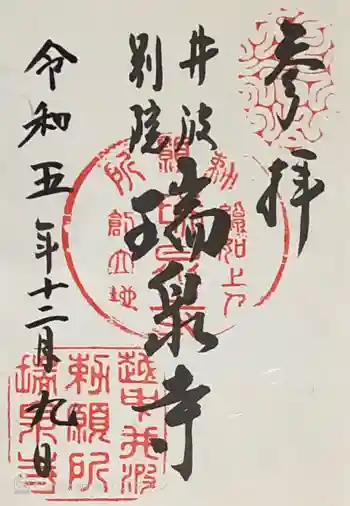 参拝
井波
別院
瑞泉寺
令和五年十二月九日
越中井波
勅願所
瑞泉寺